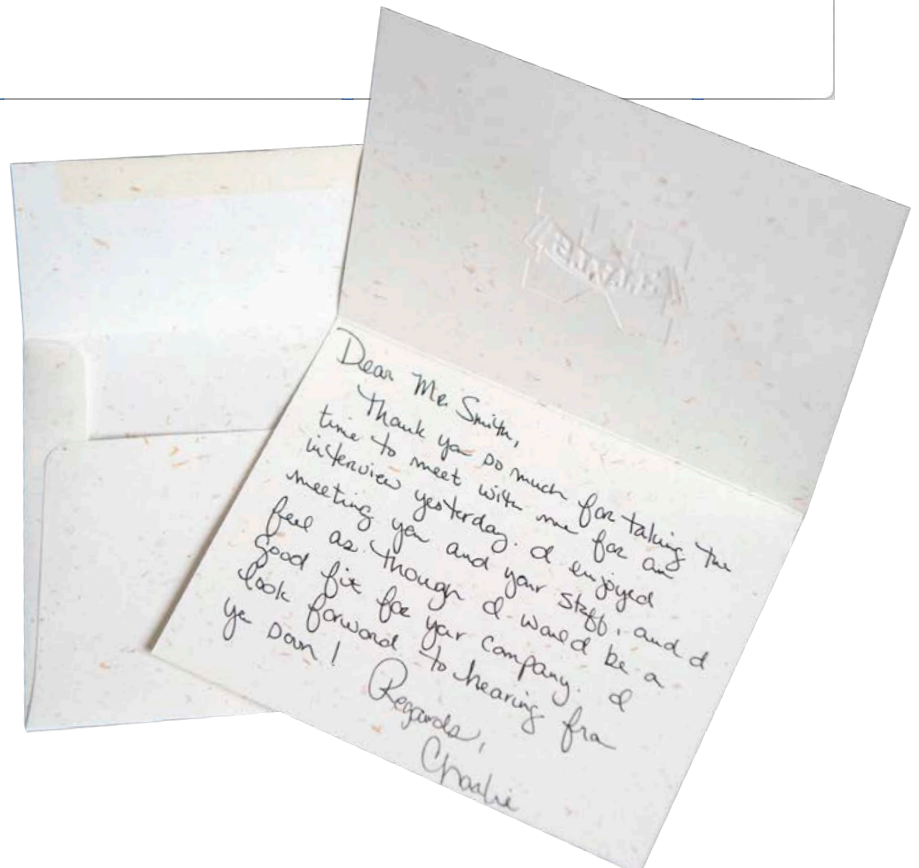 Dear Mr. Smith,
Thank you so much for taking the
time to meet with me for an
interview yesterday. I enjoyed
meeting you and your staff, and I
feel as though I would be a
good fit for your company. I
look forward to hearing from
you soon!
Regards,
Charlie